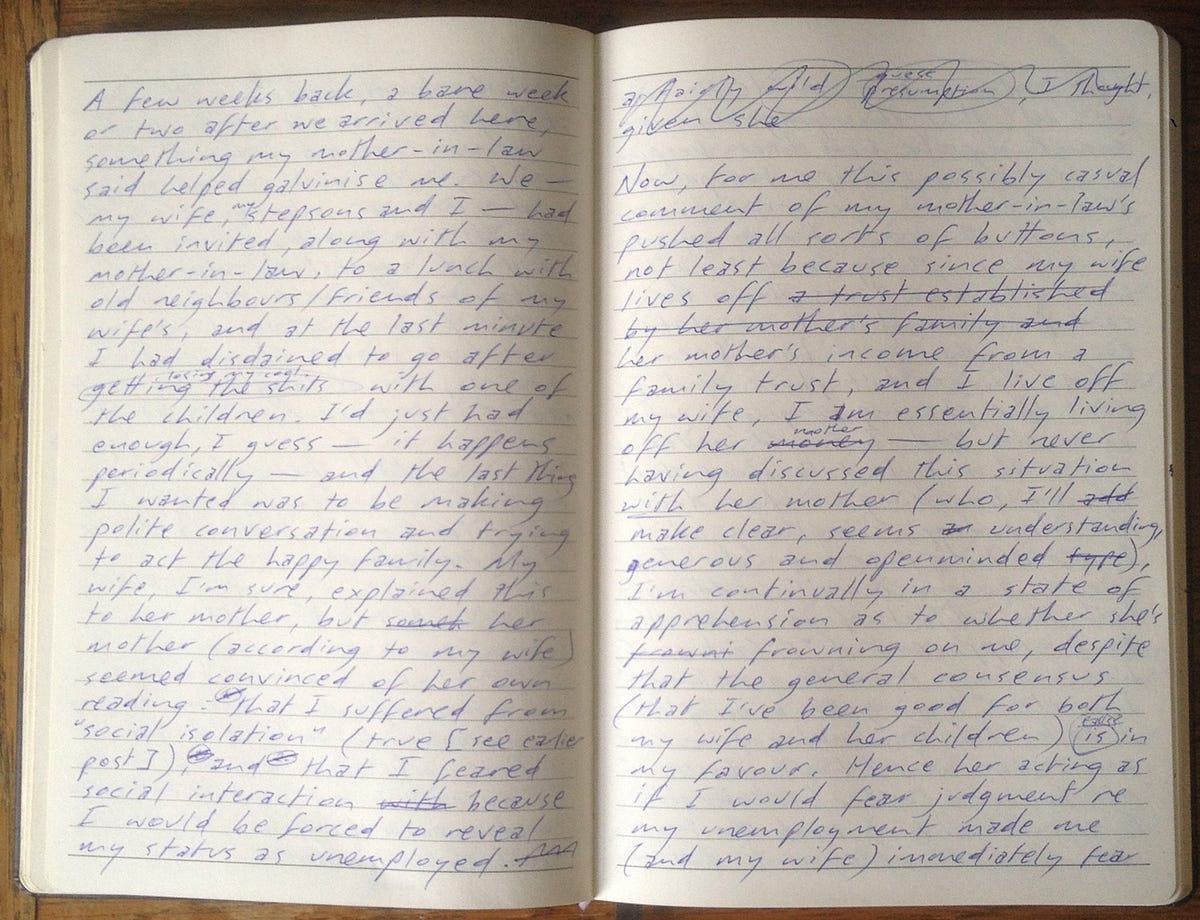 A few weeks back, a bare week
or two after we arrived here,
something my mother-in-law
said helped galvinise me. We —
my wife, my stepsons and I — had
been invited, along with my
mother-in-law, to a lunch with
old neighbours/friends of my
wife's, and at the last minute
I had disdained to go after
losing my cool
getting the shits with one of
the children. I'd just had
enough, I guess — it happens
periodically — and the last thing
I wanted was to be making
polite conversation and trying
to act the happy family. My
wife, I'm sure, explained this
to her mother, but her
mother (according to my wife)
seemed convinced of her own
reading: that I suffered from
"social isolation" (true [see earlier
post]), and that I feared
social interaction with because
I would be forced to reveal
my status as unemployed.
a fairly wild guess
presumption, I thought,
given she
Now, for me this possibly casual
comment of my mother-in-law's
pushed all sorts of buttons,
not least because since my wife
lives off a trust established
by her mother's family and
her mother's income from a
family trust, and I live off
my wife, I am essentially living
mother
off her money — but never
having discussed this situation
with her mother (who, I'll add
make clear, seems an understanding,
generous and openminded type),
I'm continually in a state of
apprehension as to whether she's
frownt frowning on me, despite
that the general consensus
(that I've been good for both
my wife and her children) is in
my favour. Hence her acting as
if I would fear judgment re
my unemployment made me
(and my wife) immediately fear